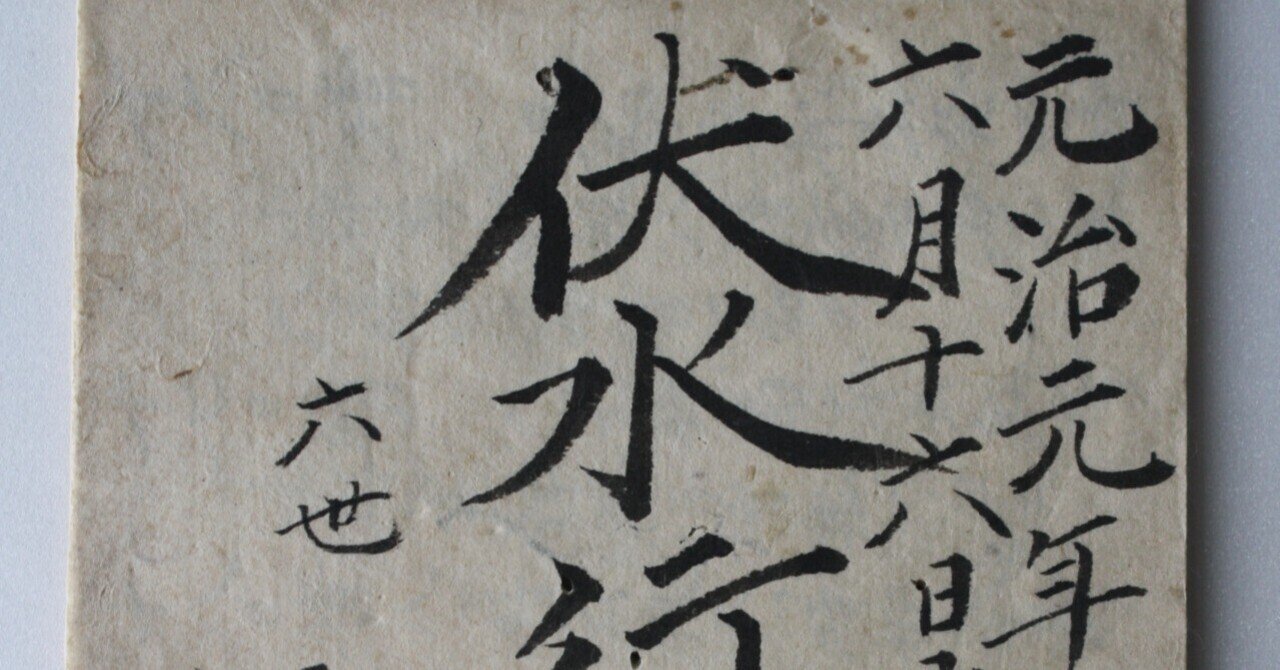 元治元年
六月十六日
伏水行
六世